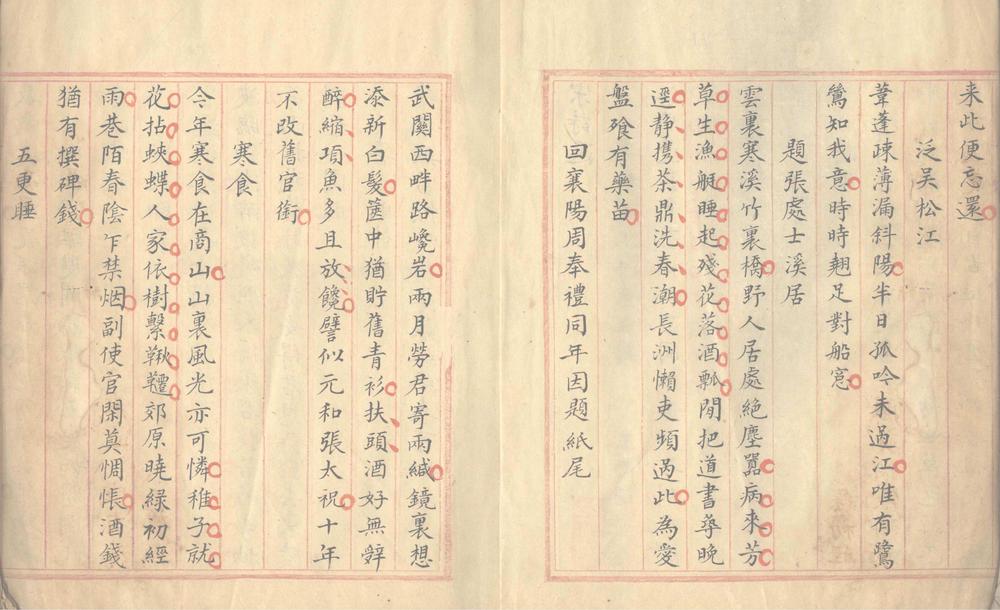 来此便忘還
泛吴松江
葦蓬疎薄漏斜陽半日孤吟未過江唯有鷺
鷥知我意時時翹足對船窓
題張處士溪居
雲裏寒溪竹裏橋野人居處絶塵囂病來芳
草生漁艇睡起殘花落酒瓢閒把道書尋晚
逕静携茶鼎洗春潮長洲懶吏頻過此為愛
盤飱有藥苗
回襄陽周奉禮同年因題紙尾
武關西畔路巉岩兩月勞君寄兩緘鏡裏想
添新白髮篋中猶貯舊青衫扶頭酒好無辭
醉縮項魚多且放饞譬似元和張太祝十年
不改舊官銜
寒食
今年寒食在商山山裏風光亦可憐稚子就
花拈蛺蝶人家依樹繫鞦韆郊原曉緑初經
雨巷陌春陰乍禁烟副使官閑莫惆悵酒錢
猶有撰碑錢
五更睡